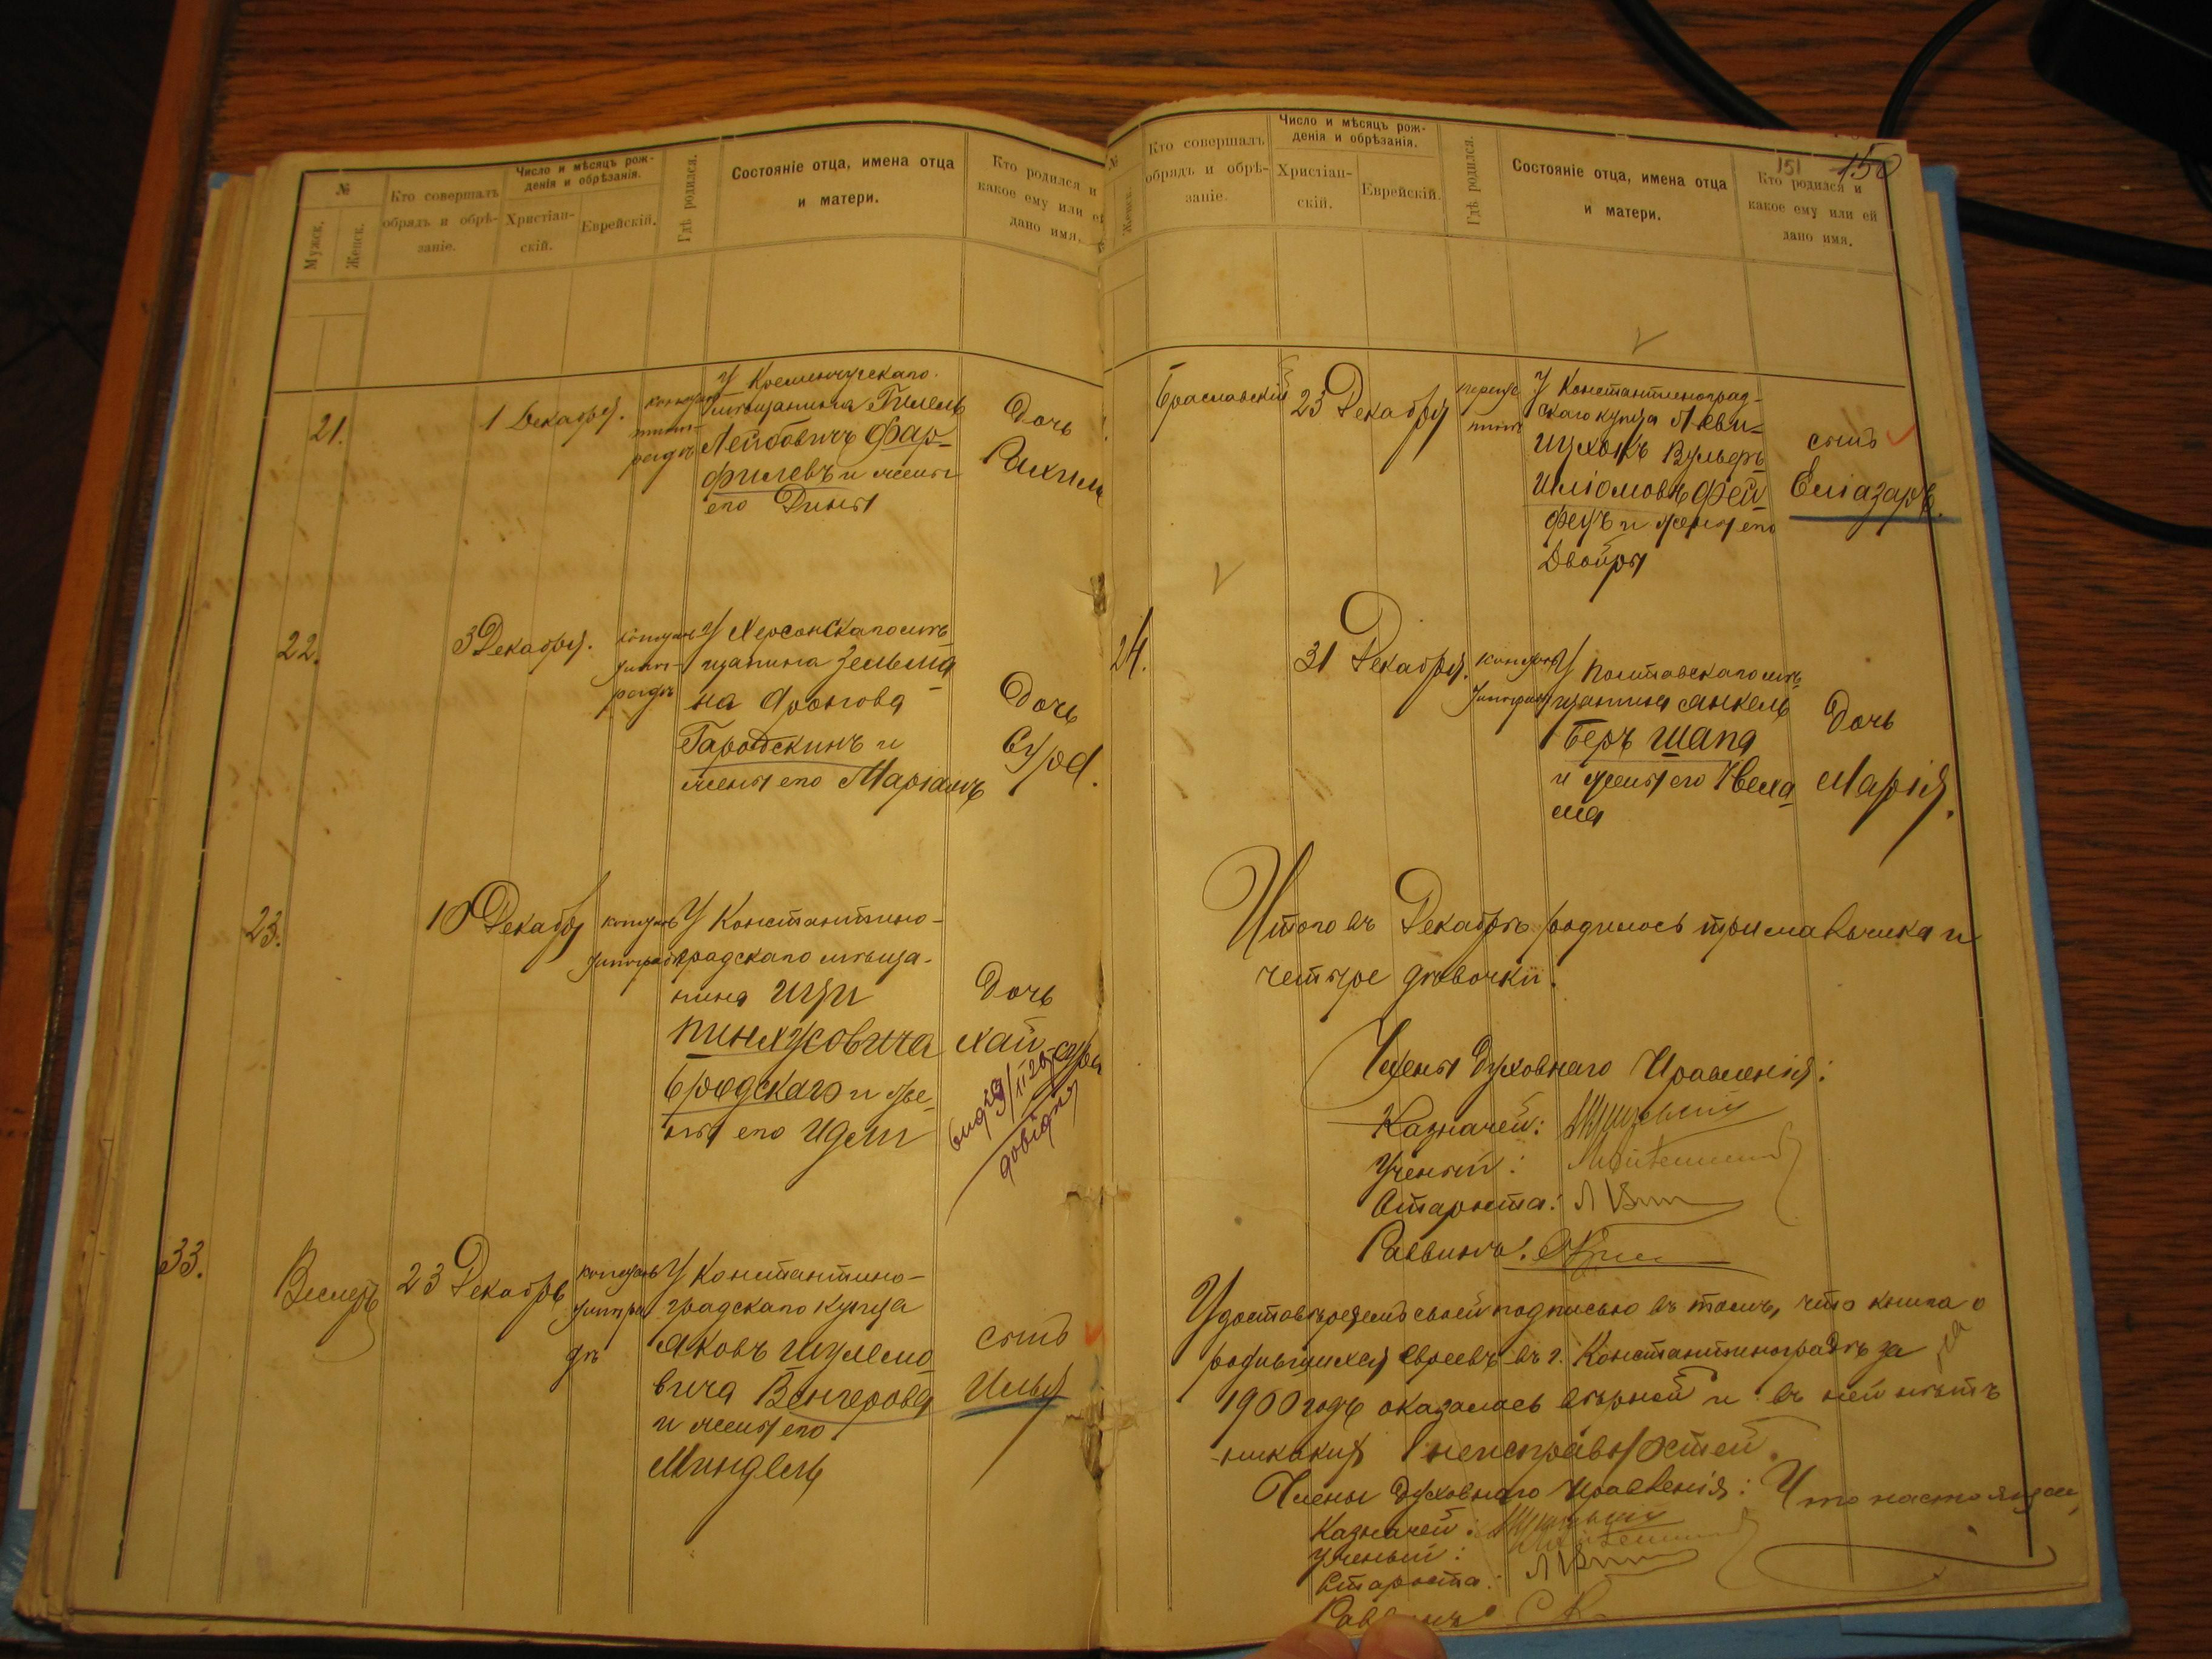 №
Мужск.
Женск.
Кто совершалъ
обрядъ и обрѣ-
заніе.
Число и мѣсяцъ рож-
денія и обрѣзанія.
Христіан-
скій.
Еврейскій.
Гдѣ родился.
Состояніе отца, имена отца
и матери.
Кто родился и
какое ему или ей
дано имя.
21.
1 Декабря.
У Кременчугскаго
мѣщанина Гилель
Лейбовичъ Фар-
филевъ и жены
его Дины
Дочь
Рахиль
22.
3 Декабря.
У Херсонскаго мѣ-
щанина Зельма
на Аронова
Городскинъ и
жены его Маріамъ
Дочь
Сура.
23.
10 Декабря
У Константино-
градскаго мѣща-
нина Ицки
Пинхусовича
Бродскаго и же-
ны его Идели
Дочь
Хая-Сура
довідку
33.
23 Декабря
У Константино-
градскаго купца
Яковъ Шулемо
вича Венгерова
и жены его
Миндель
сынъ
Илья
№
Женск.
Кто совершалъ
обрядъ и обрѣ-
заніе.
Число и мѣсяцъ рож-
денія и обрѣзанія.
Христіан-
скій.
Еврейскій.
Гдѣ родился.
Состояніе отца, имена отца
и матери.
Кто родился и
какое ему или ей
дано имя.
151
150
Браславскій
23 Декабря
У Константиноград-
скаго купца
Шліомовъ Фей
фецъ и жены его
Двойры
сынъ
Еліазаръ.
24.
31 Декабря.
У Полтавскаго мѣ-
щанина Янкель
Беръ Шапа
и жены его
Дочь
Марія.
Итого въ Декабрѣ родилось три мальчика и
четыре дѣвочки.
Члены Духовнаго Правленія:
Казначей:
Ученый:
Староста:
Раввинъ:
Удостовѣряемъ своей подписью въ томъ, что книга о
родившихся евреевъ въ г. Константиноградѣ за
1900 годъ оказалась вѣрной и въ ней нѣтъ
никакихъ неисправностей.
Члены Духовнаго Правленія: Что настоящая
Казначей:
Ученый:
Староста:
Раввинъ